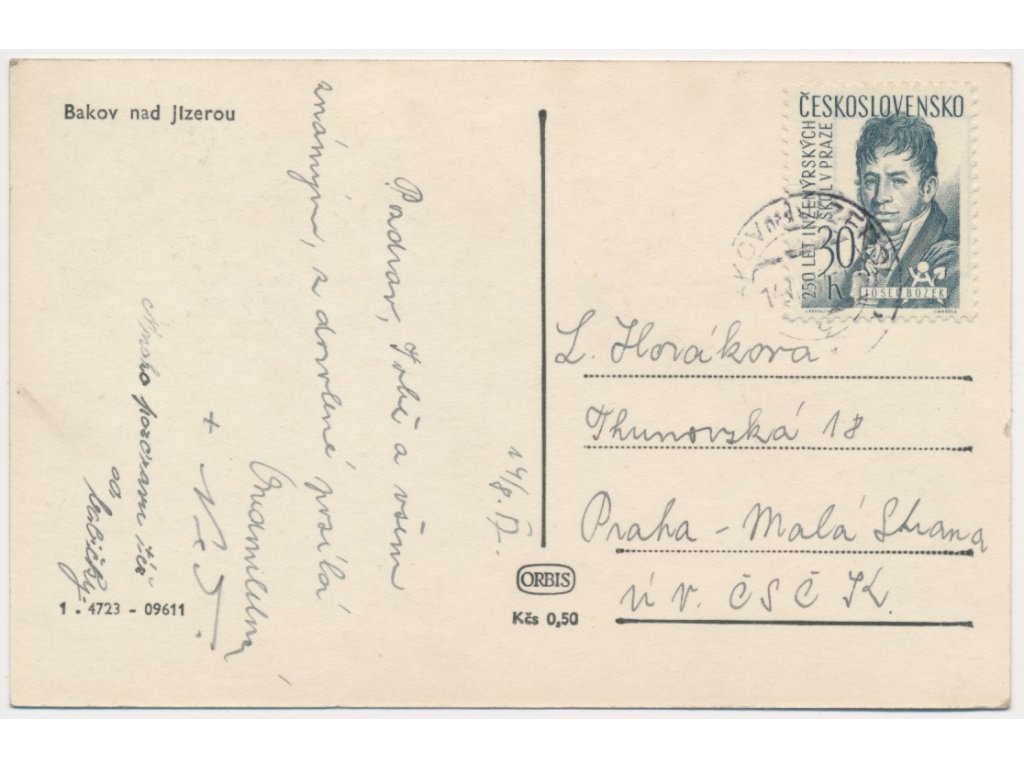 Bakov nad Jizerou
Pozdrav, Tobě a všem
známým, z dovolené posílá
+
Mnoho pozdravů
od
babičky.
14/8. 57.
1 . 4723 - 09611
ORBIS
Kčs 0,50
ČESKOSLOVENSKO
250 LET INŽENÝRSKÝCH
ŠKOL V PRAZE
30
h
JOSEF BOŽEK
L. Horákova
Thunovská 18
Praha - Malá Strana
ÚV. ČSČK.